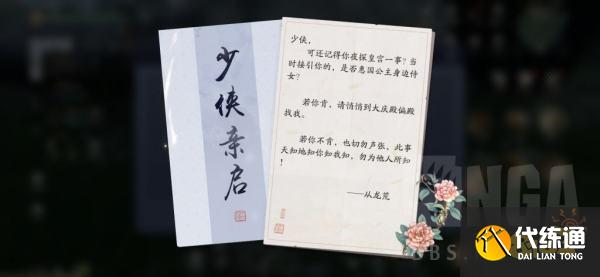 少侠亲启
少侠，
可还记得你夜探皇宫一事？当
时接引你的，是否惠国公主身边侍
女？
若你肯，请悄悄到大庆殿偏殿
找我。
若你不肯，也切勿声张，此事
天知地知你知我知，勿为他人所知
！
——从龙荒
NGA
BBS.
代练通
DAI LIAN TONG